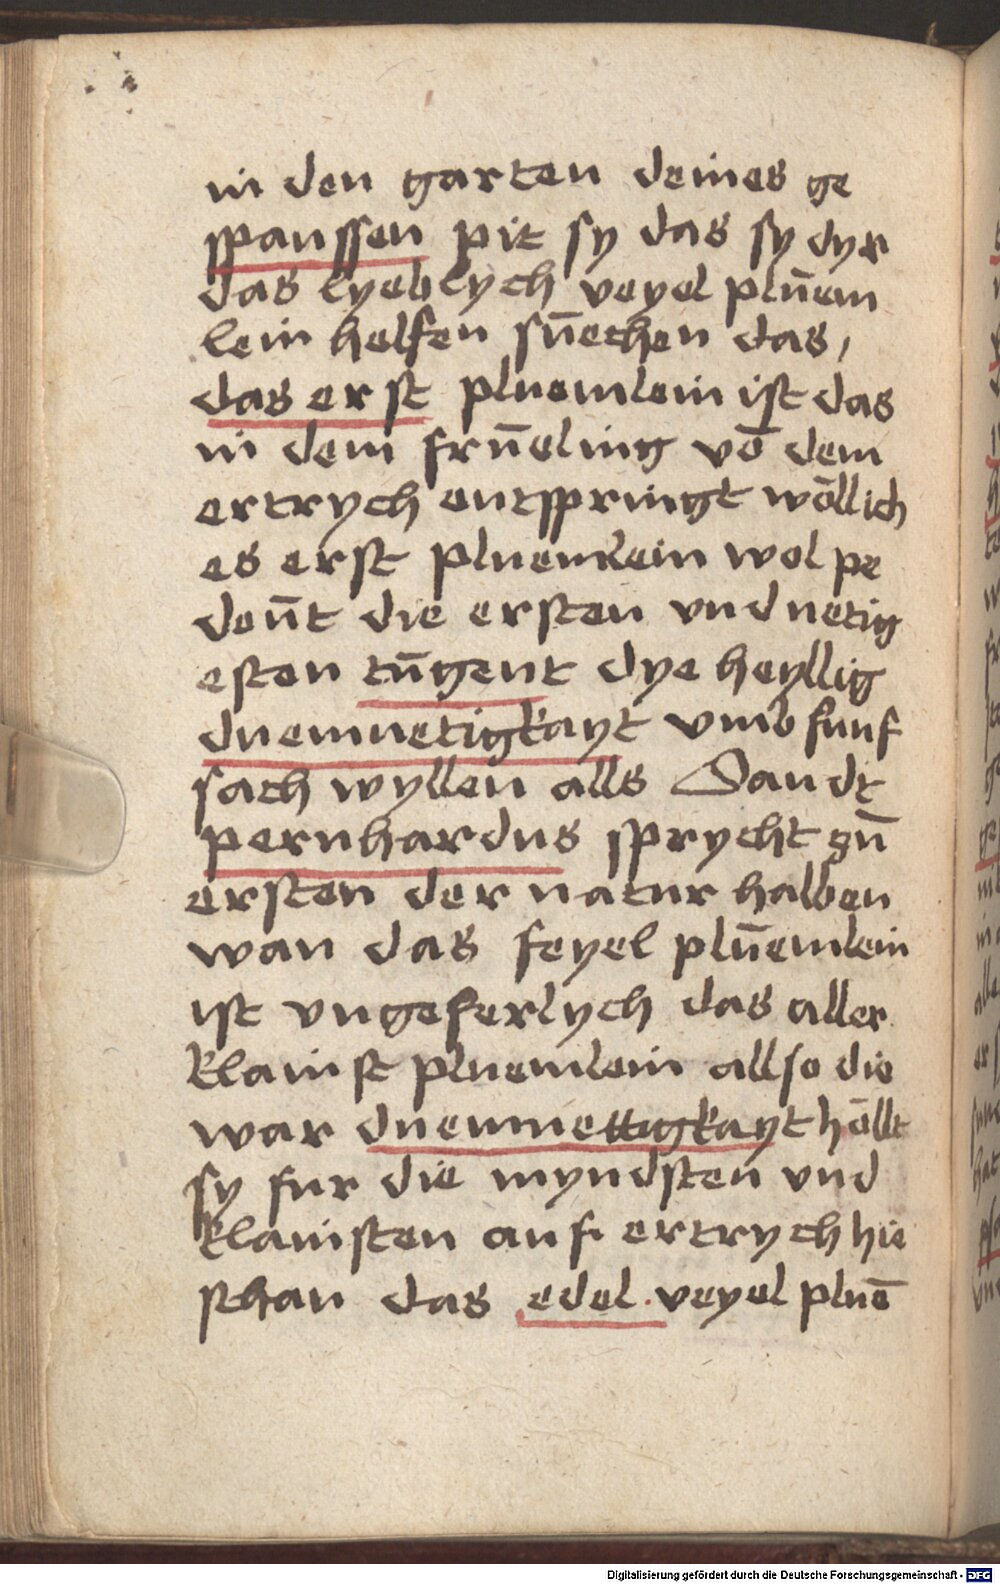 in den garten deines ge
spanssen pit sy das sy dyr
das lyeblych veyel plūem
lein helfen sūechen das,
das erst pluemlein ist das
in dem frūeling vō dem
ertrych entsspringt wōllich
es erst pluemlein wol pe
deūt die ersten vnd netig
esten tūgent dye heyllig
duemuetigkayt vmb funf
sach wyllen alls Sandt
pernhardus sprycht zū
ersten der natur halben
wan das feyel plūemlein
ist vngeferlych das aller
klainst pluemlein allso die
war duemuettigkayt hōllt
sy fur die myndsten vnd
klainsten auf ertrych hie
schau das edel veyel pluē
Digitalisierung gefördert durch die Deutsche Forschungsgemeinschaft - DFG